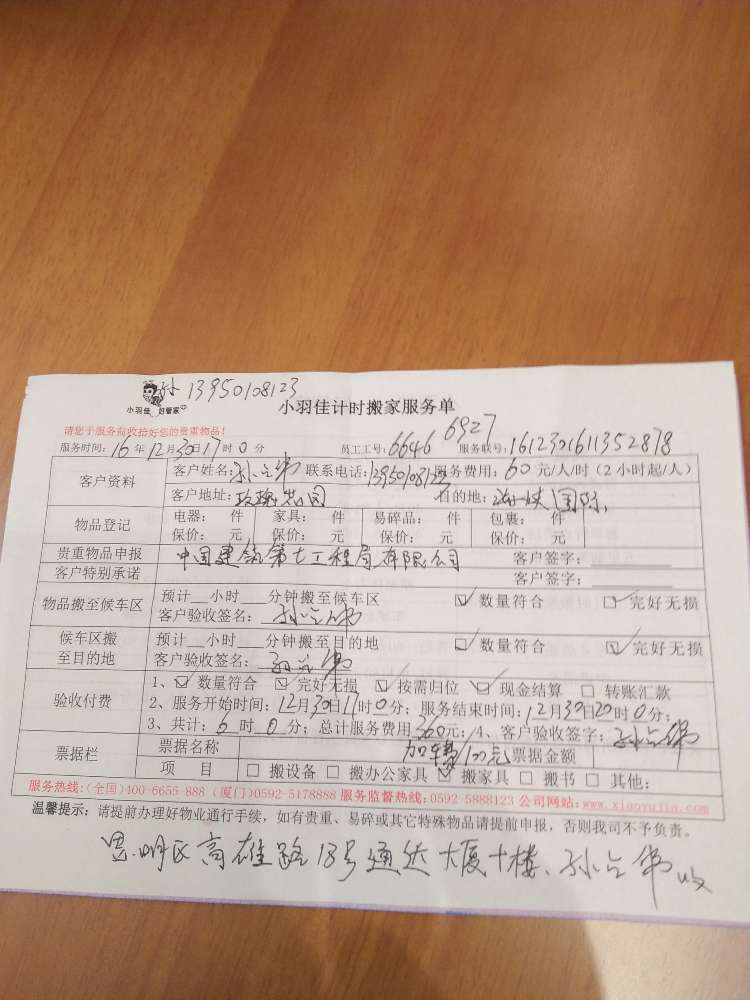 孙 13950108123
小羽佳 好管家
小羽佳计时搬家服务单
请您于服务前收拾好您的贵重物品!
6927
服务时间: 16 年 12 月 30 日 17 时 0 分 员工工号: 6646 服务联号: 1612301611352878
客户资料 客户姓名: 孙立伟 联系电话: 13950108123 服务费用: 60 元/人/时 (2小时起/人)
客户地址: 玫瑰花园 目的地: 海峡国际
物品登记 电器: 件 家具: 件 易碎品: 件 包裹: 件
保价: 元 保价: 元 保价: 元 保价: 元
贵重物品申报 中国建筑第七工程局有限公司 客户签字:
客户特别承诺 客户签字:
物品搬至候车区 预计__小时___分钟搬至候车区 ☑ 数量符合 ☑ 完好无损
客户验收签名: 孙立伟
候车区搬至目的地 预计__小时___分钟搬至目的地 ☑ 数量符合 ☑ 完好无损
客户验收签名: 孙立伟
验收付费 1、☑ 数量符合 ☑ 完好无损 ☑ 按需归位 ☑ 现金结算 □ 转账汇款
2、服务开始时间: 12月30日17时0分; 服务结束时间: 12月30日20时0分;
3、共计: 6 时 0 分; 总计服务费用 360元; 4、客户验收签字: 孙立伟
票据栏 票据名称 加车费100元 票据金额
项 目 □ 搬设备 □ 搬办公家具 ☑ 搬家具 □ 搬书 □ 其他:
服务热线:(全国)400-6655-888 (厦门)0592-5178888 服务监督热线:0592-5888123 公司网站:www.xiaoyujia.com
温馨提示: 请提前办理好物业通行手续, 如有贵重、易碎或其它特殊物品请提前申报, 否则我司不予负责。
思明区高雄路18号通达大厦十楼、孙立伟收